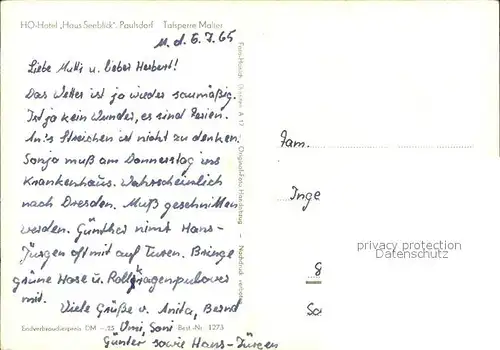 HO-Hotel „Haus Seeblick“, Paulsdorf Talsperre Malter
M. d. 6.7.65
Liebe Mutti u. lieber Herbert!
Das Wetter ist ja wieder saumäßig.
Ist ja kein Wunder, es sind Ferien.
An's Streichen ist nicht zu denken.
Sonja muß am Donnerstag ins
Krankenhaus. Wahrscheinlich
nach Dresden. Muß geschnitten
werden. Günther nimt Hans-
Jürgen oft mit auf Turen. Bringe
grüne Hose u. Rollkragenpulover
mit.
Viele Grüße v. Anita, Bernd
Omi, Soni
Günter sowie Hans-Jürgen
Endverbraucherpreis DM —,25 Best.-Nr. 1273
Foto-Handg. Dresden A 17 — Original-Foto Handabzug — Nachdruck verboten
Fam.
Inge
privacy protection
Datenschutz